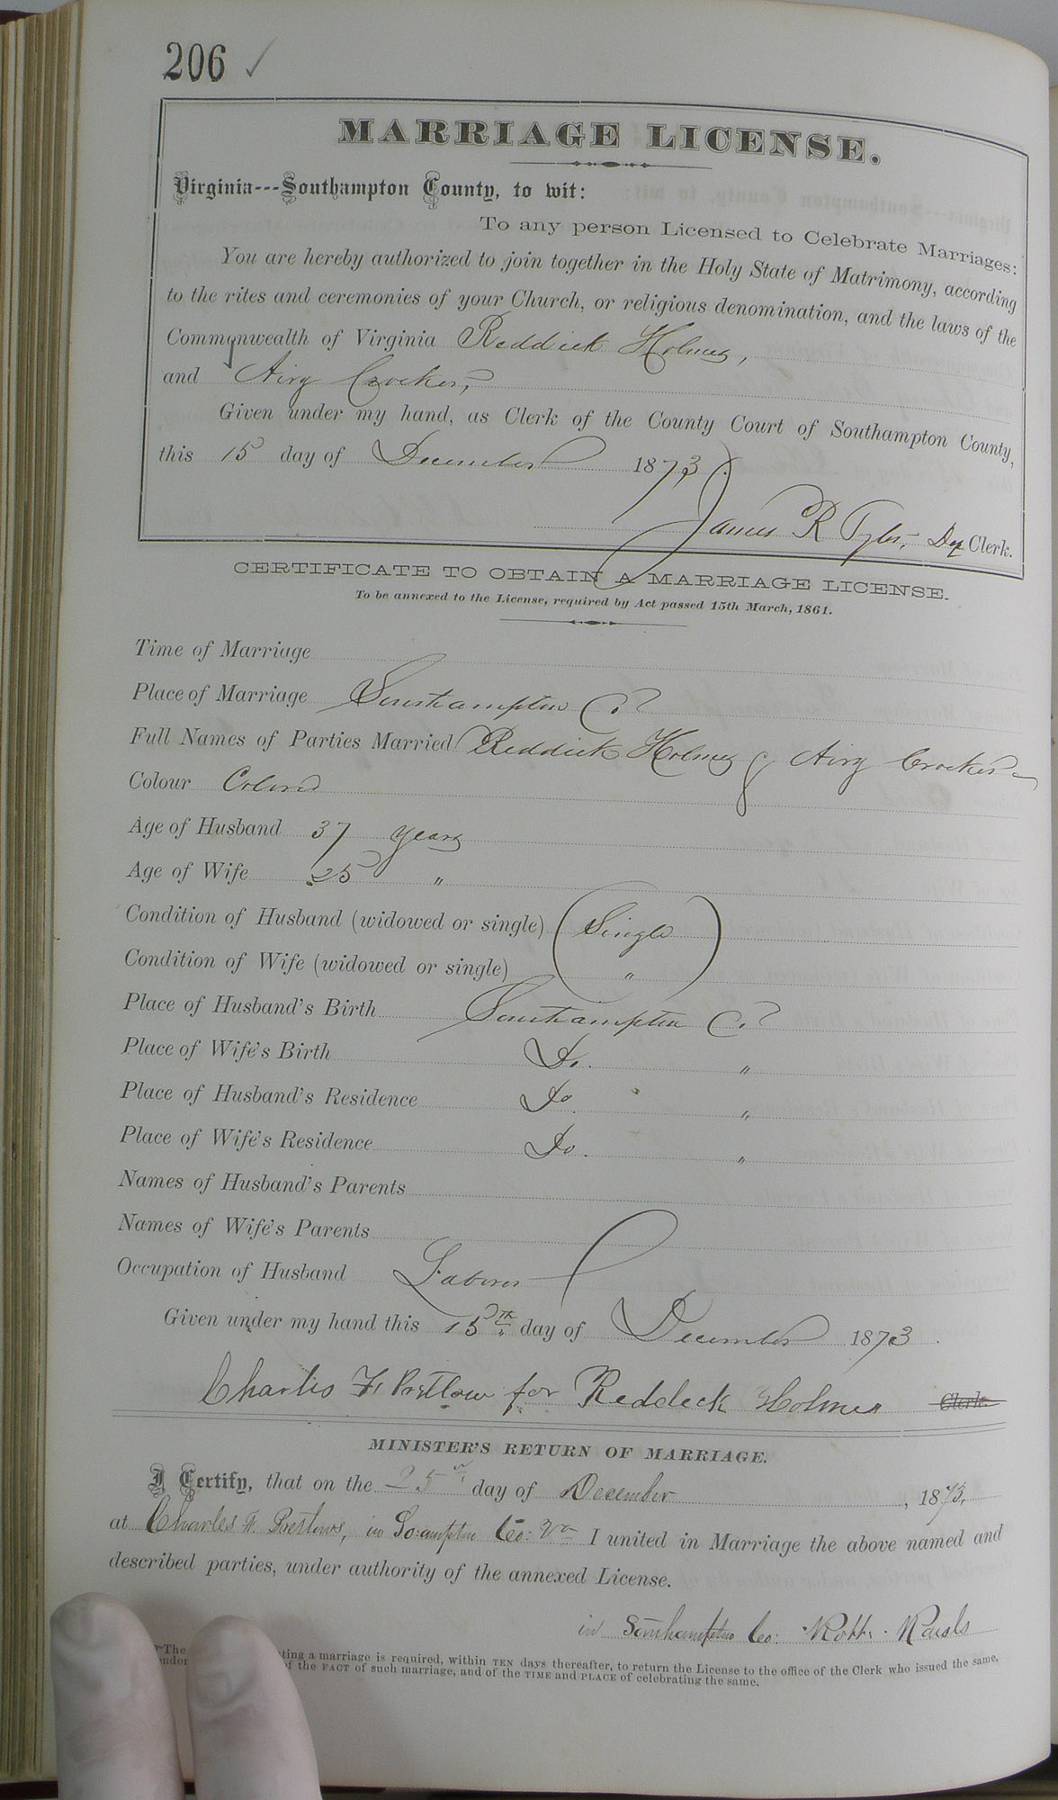 206 ✓
MARRIAGE LICENSE.
Virginia---Southampton County, to wit:
To any person Licensed to Celebrate Marriages:
You are hereby authorized to join together in the Holy State of Matrimony, according
to the rites and ceremonies of your Church, or religious denomination, and the laws of the
Commonwealth of Virginia Reddick Holmes,
and Airy Crocker,
Given under my hand, as Clerk of the County Court of Southampton County,
this 15 day of December 1873.
James R Tyler, Dep Clerk.
CERTIFICATE TO OBTAIN A MARRIAGE LICENSE.
To be annexed to the License, required by Act passed 15th March, 1861.
Time of Marriage
Place of Marriage Southampton Co.
Full Names of Parties Married Reddick Holmes & Airy Crocker
Colour Colored
Age of Husband 37 years
Age of Wife 25 "
Condition of Husband (widowed or single) Single
Condition of Wife (widowed or single) "
Place of Husband's Birth Southampton Co.
Place of Wife's Birth Do. "
Place of Husband's Residence Do "
Place of Wife's Residence Do. "
Names of Husband's Parents
Names of Wife's Parents
Occupation of Husband Laborer
Given under my hand this 15th day of December 1873.
Charles F. Pretlow for Reddick Holmes Clerk.
MINISTER'S RETURN OF MARRIAGE.
I Certify, that on the 25th day of December, 1873,
at Charles F. Pretlows, in So:ampton Co: Va I united in Marriage the above named and
described parties, under authority of the annexed License.
in Southampton Co: Robt.
The ting a marriage is required, within TEN days thereafter, to return the License to the office of the Clerk who issued the same,
of the FACT of such marriage, and of the TIME and PLACE of celebrating the same.